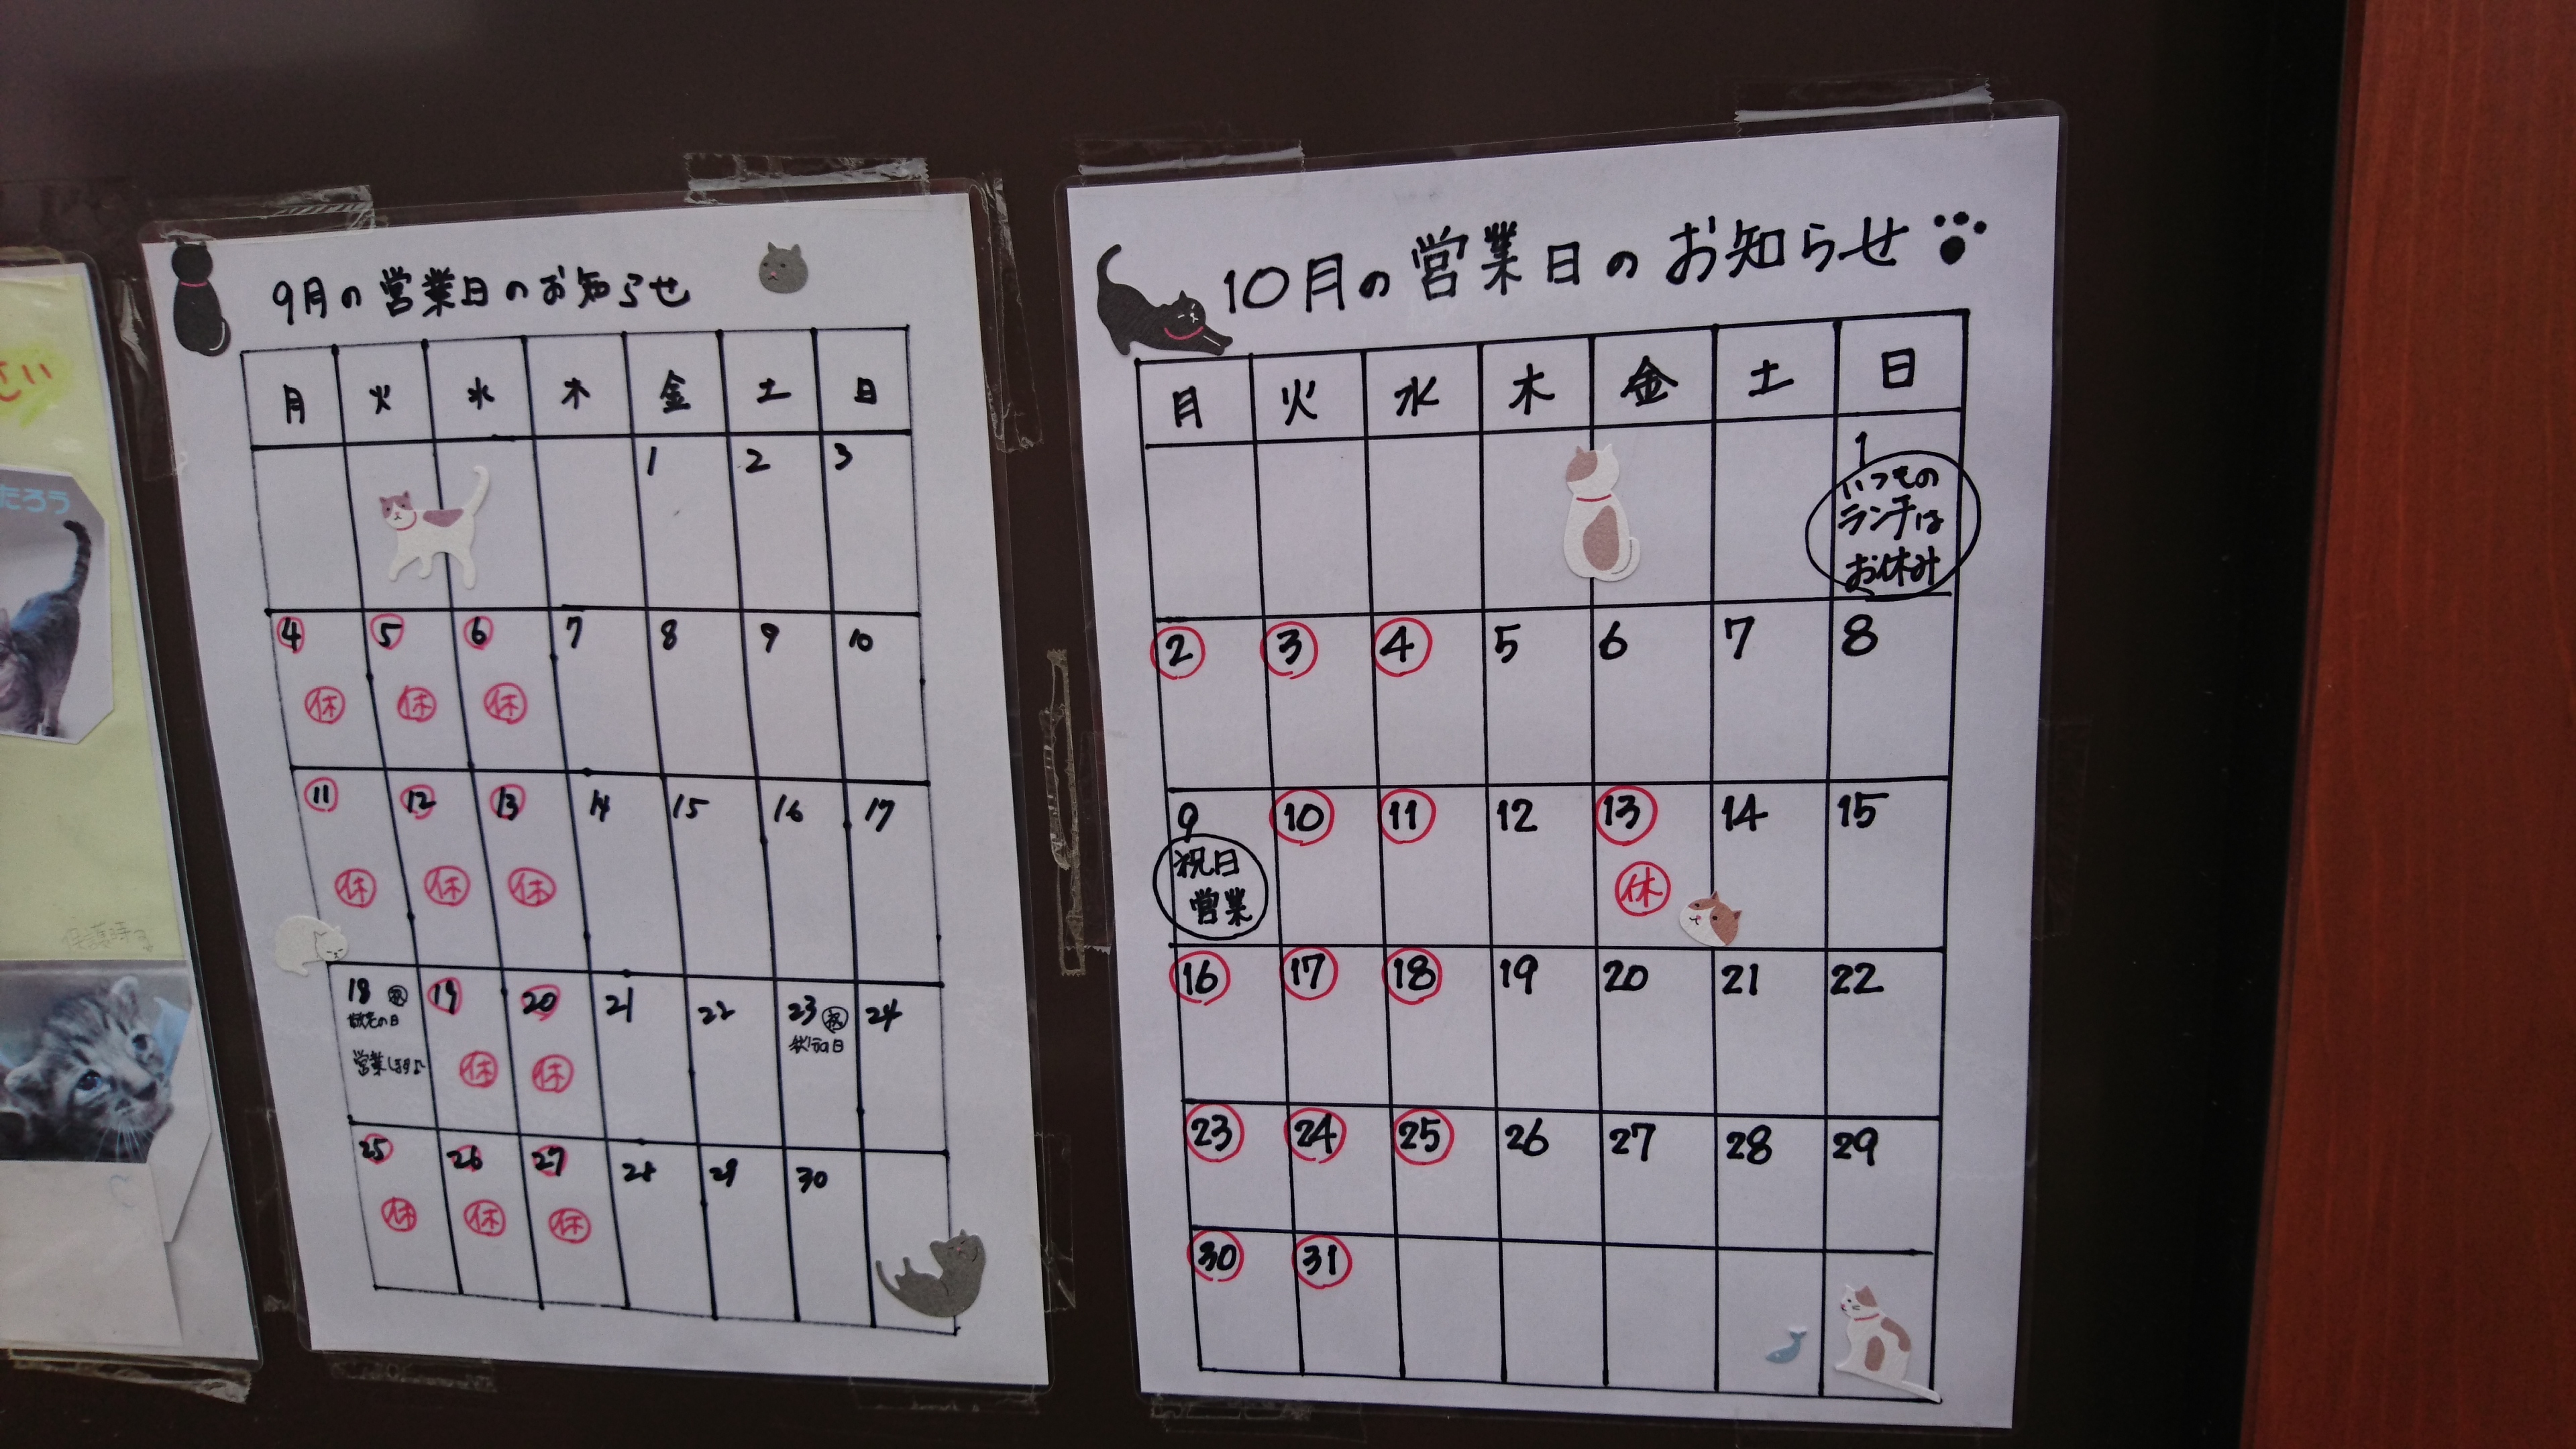 さい
たろう
9月の営業日のお知らせ
月 火 水 木 金 土 日
1 2 3
4 5 6 7 8 9 10
休 休 休
11 12 13 14 15 16 17
休 休 休
18 祝 19 20 21 22 23 祝 24
敬老の日
秋分の日
営業します♪
休 休
25 26 27 28 29 30
休 休 休
10月の営業日のお知らせ
月 火 水 木 金 土 日
1
いつもの
ランチは
お休み
2 3 4 5 6 7 8
9 10 11 12 13 14 15
祝日
営業
休
16 17 18 19 20 21 22
23 24 25 26 27 28 29
30 31